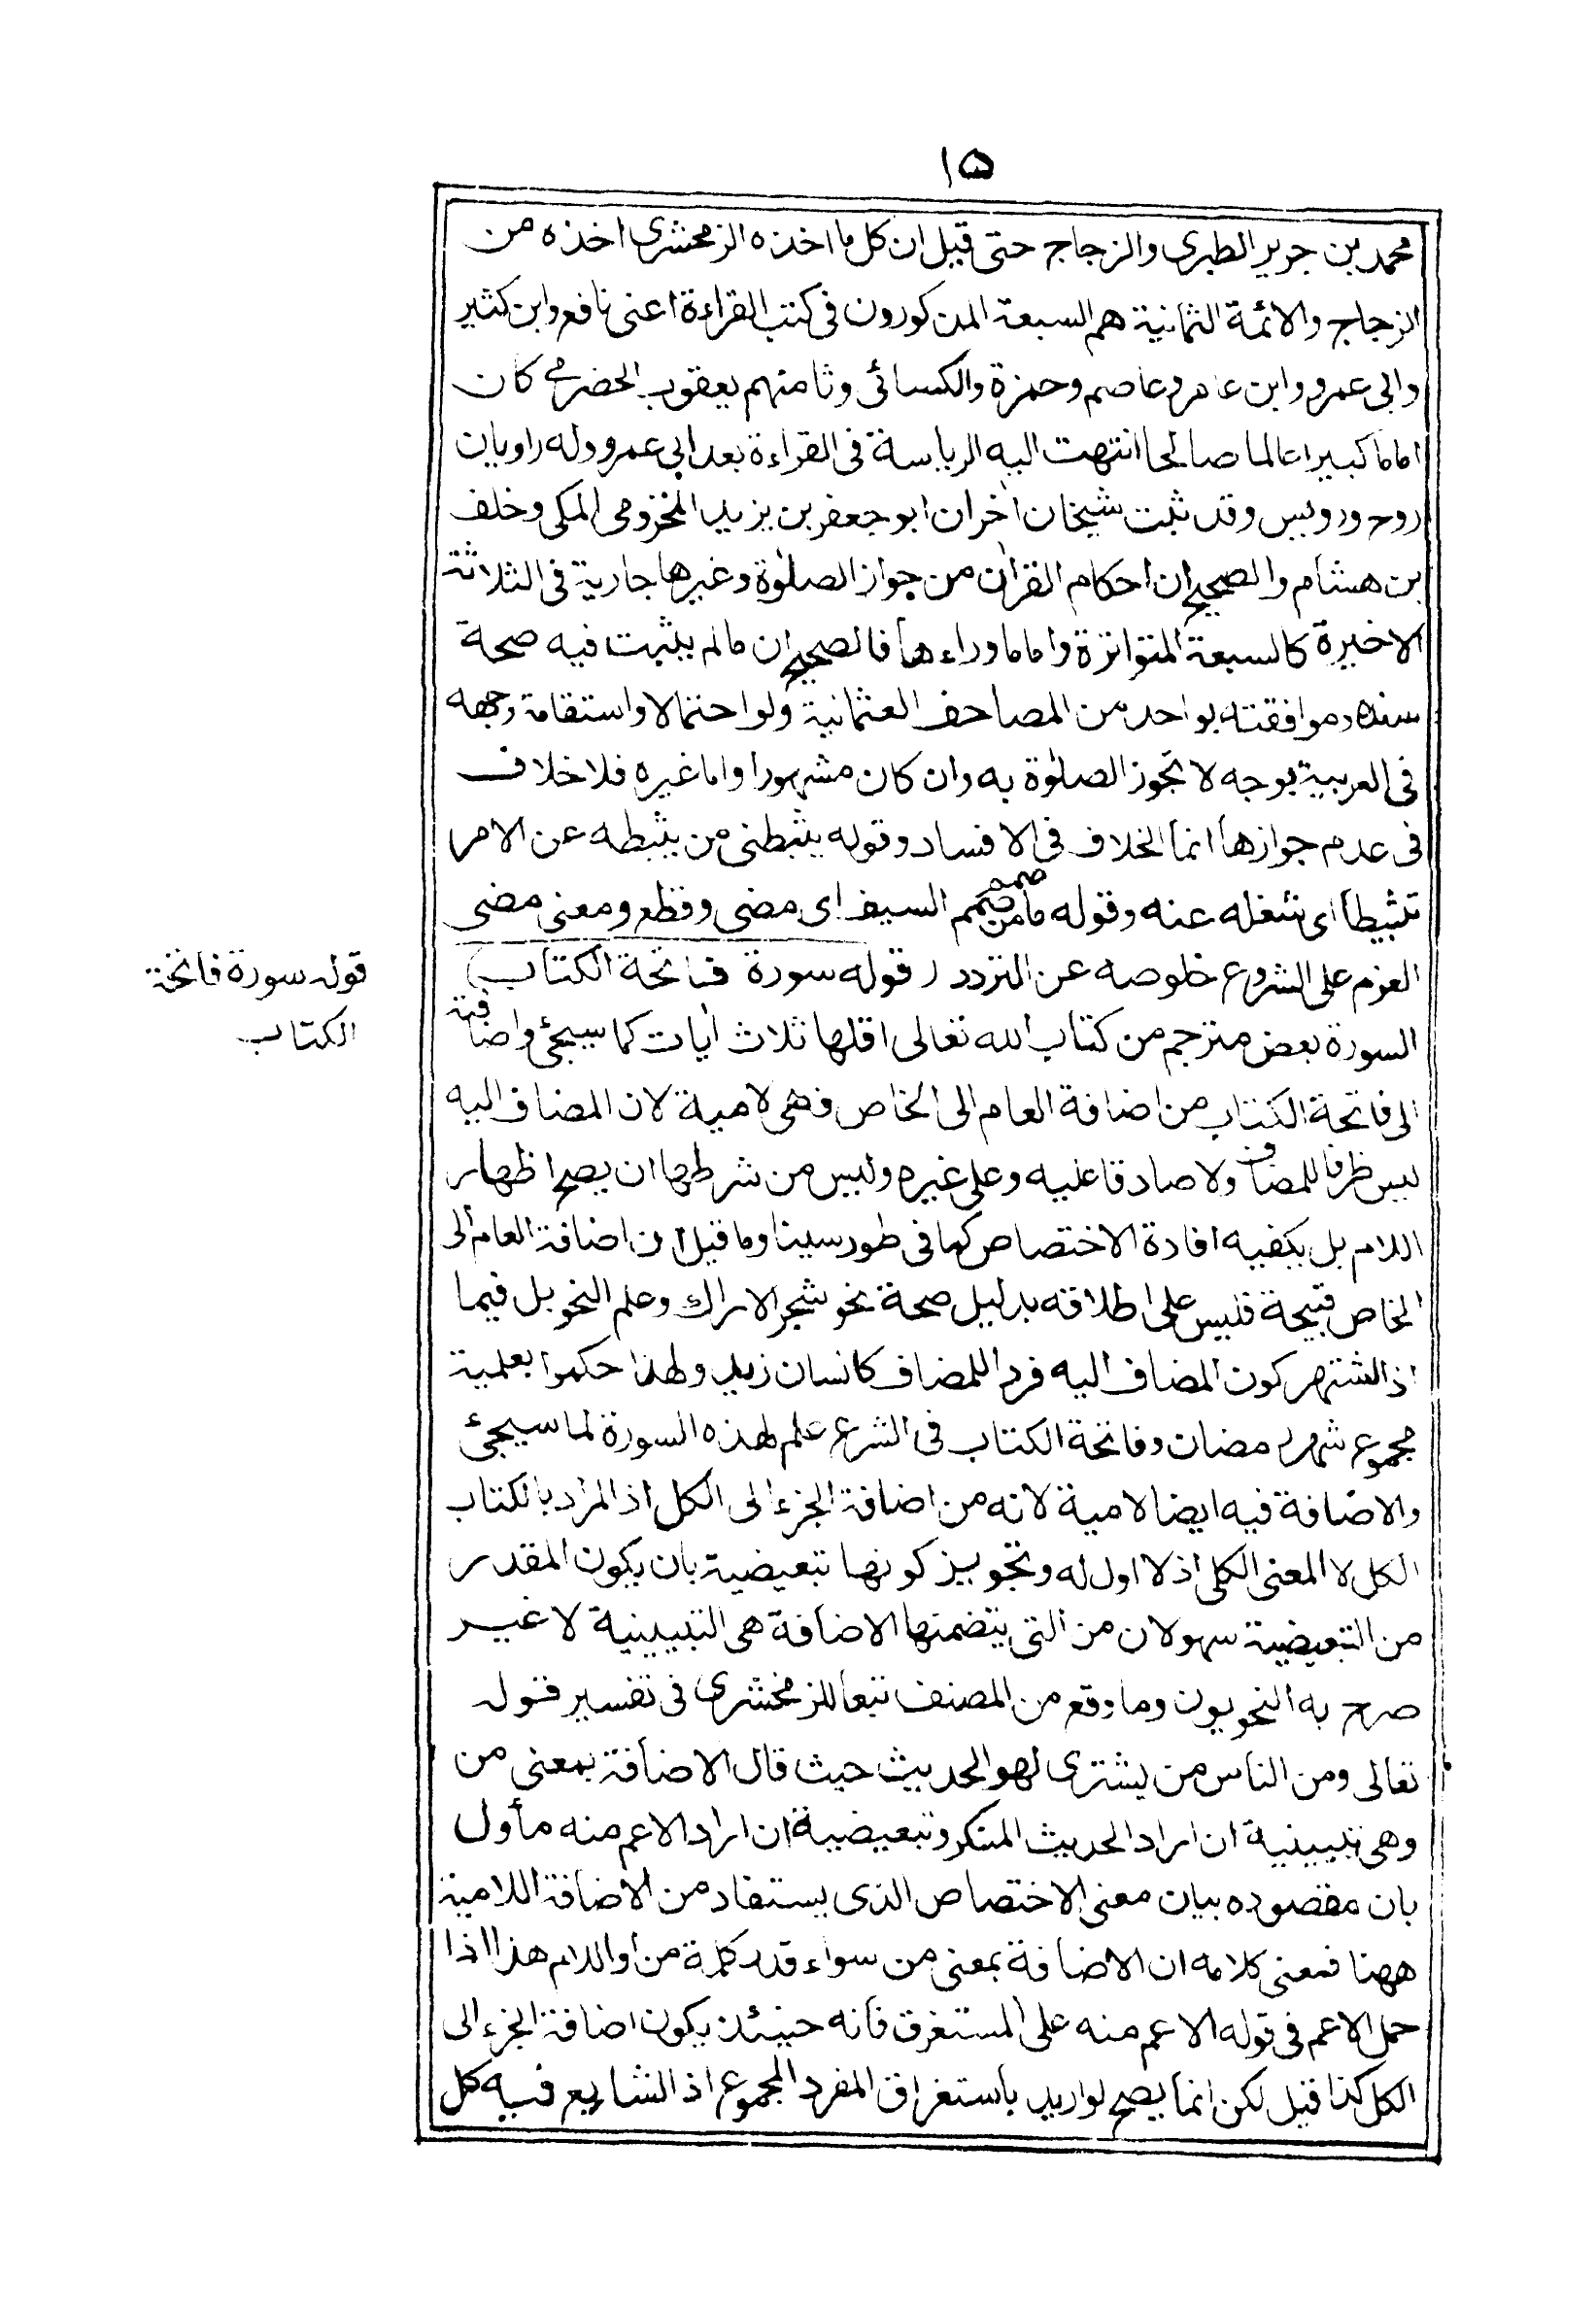 ١٥
محمد بن جرير الطبري والزجاج حتى قيل ان كل ما اخذه الزمخشرى اخذه من
الزجاج والائمة الثمانية هم السبعة المذكورون فى كتب القراءة اعنى نافع وابن كثير
وابى عمرو وابن عامر وعاصم وحمزة والكسائى وثامنهم يعقوب الحضرمى كان
اماما كبيرا عالما صالحا انتهت اليه الرياسة فى القراءة بعد ابى عمرو وله راويان
روح ورويس وقد ثبت شيخان اخران ابو جعفر بن يزيد المخزومى المكى وخلف
بن هشام والصحيح ان احكام القران من جواز الصلوٰة وغيرها جارية فى الثلاثة
الاخيرة كالسبعة المتواترة واما ماوراءها فالصحيح ان مالم يثبت فيه صحة
سنده وموافقته بواحد من المصاحف العثمانية ولو احتمالا واستقامة وجهه
فى العربية بوجه لا تجوز الصلوٰة به وان كان مشهورا واما غيره فلا خلاف
فى عدم جوازها انما الخلاف فى الافساد وقوله يثبطنى من يثبطه عن الامر
تثبيطا اى شغله عنه وقوله ما من صمم السيف اى مضى وقطع ومعنى مضى
العزم على الشروع خلوصه عن التردد (قوله سورة فاتحة الكتاب)
قوله سورة فاتحة
الكتاب
السورة بعض مترجم من كتاب الله تعالى اقلها ثلاث ايات كما سيجئ واضافته
الى فاتحة الكتاب من اضافة العام الى الخاص فهى لامية لان المضاف اليه
ليس ظرفا للمضاف ولا صادقا عليه وعلى غيره وليس من شرطها ان يصح اظهار
اللام بل يكفيه افادة الاختصاص كما فى طور سينا وما قيل ان اضافة العام الى
الخاص قبيحة فليس على اطلاقه بدليل صحة نحو شجر الاراك وعلم النحو بل فيما
اذا اشتهر كون المضاف اليه فردا للمضاف كانسان زيد ولهذا حكموا بعلمية
مجموع شهر رمضان وفاتحة الكتاب فى الشرع علم لهذه السورة لما سيجئ
والاضافة فيه ايضا لامية لانه من اضافة الجزء الى الكل اذ المراد بالكتاب
الكل لا المعنى الكلى اذ لا اول له وتجويز كونها تبعيضية بان يكون المقدر
من التبعيضية سهو لان من التى يتضمنها الاضافة هى التبيينية لا غير
صرح به النحويون وما وقع من المصنف تبعا للزمخشرى فى تفسير قوله
تعالى ومن الناس من يشترى لهو الحديث حيث قال الاضافة بمعنى من
وهى تبيينية ان اراد الحديث المنكر وتبعيضية ان اراد الاعم منه مأول
بان مقصوده بيان معنى الاختصاص الذى يستفاد من الاضافة اللامية
ههنا فمعنى كلامه ان الاضافة بمعنى من سواء قدر كلمة من أو اللام هذا اذا
حمل الاعم فى قوله الاعم منه على المستغرق فانه حينئذ يكون اضافة الجزء الى
الكل كذا قيل لكن انما يصح لو اريد باستغراق المفرد المجموع اذ الشايع فيه كل